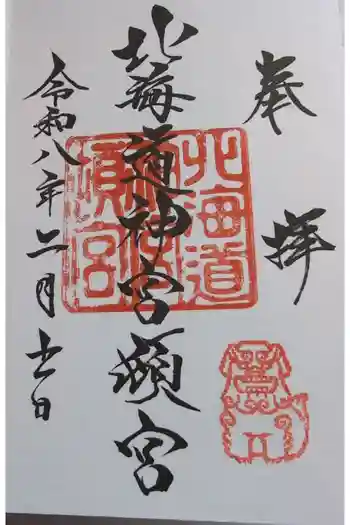 奉拝
北海道神宮頓宮
北海道神宮頓宮
令和八年二月十一日